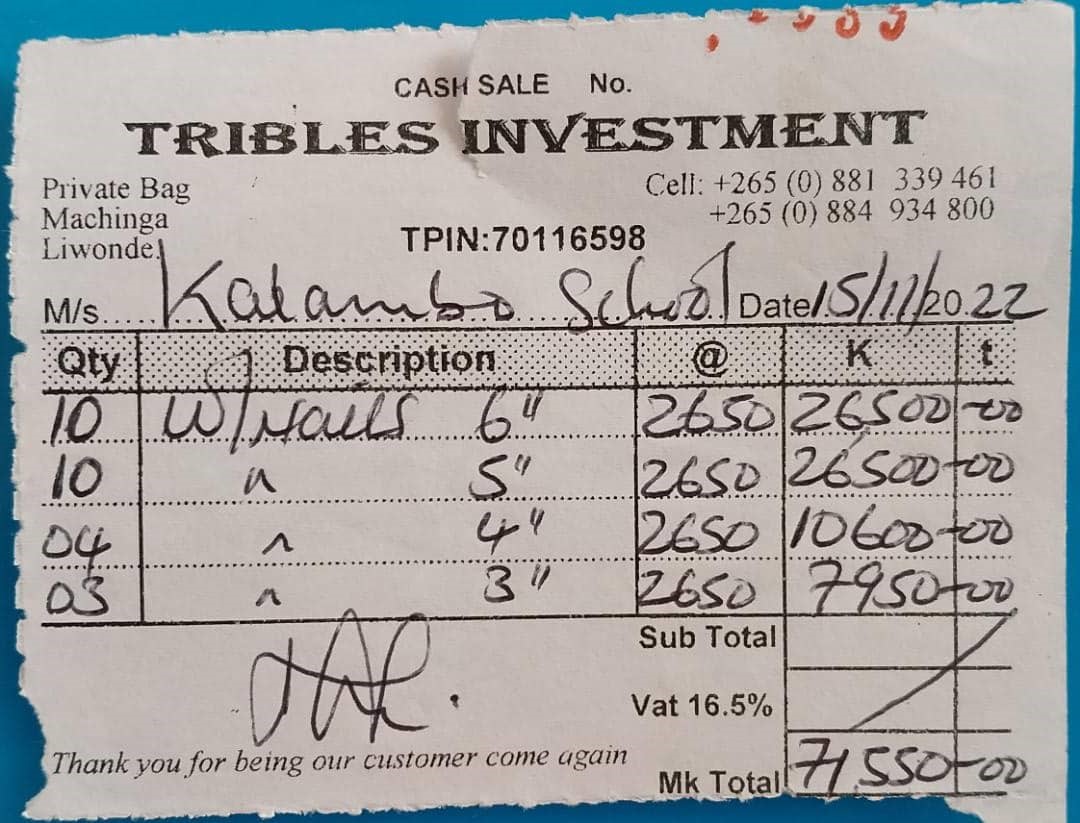 CASH SALE No.
TRIBLES INVESTMENT
Private Bag
Machinga
Liwonde
Cell: +265 (0) 881 339 461
+265 (0) 884 934 800
TPIN:70116598
M/s..... Kalambo School Date 15/11/2022
Qty Description @ K t
10 W/Nails 6" 2650 26500-00
10 " 5" 2650 26500-00
04 " 4" 2650 10600-00
03 " 3" 2650 7950-00
Sub Total
Vat 16.5%
Thank you for being our customer come again
Mk Total 71,550-00